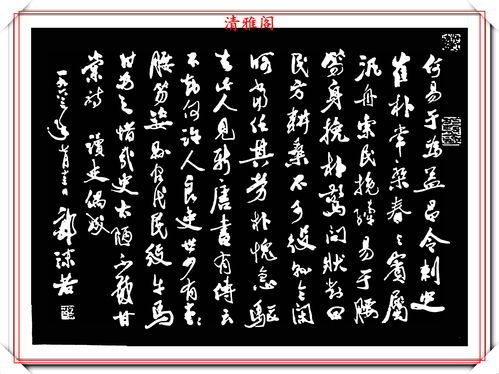 清雅阁
何易于為益昌令刺史
崔朴常乘春与賓屬
汎舟索民挽縴易于腰
笏身挽朴驚問狀對曰
民方耕桑不可役知令閑
可當任其勞朴愧急驅
去此人見新唐書有傳云
不知何許人良吏世
腰笏民民役牛馬
甘为之惜史太陋不敢甘
讀史偶成
一九六三年
郭沫若